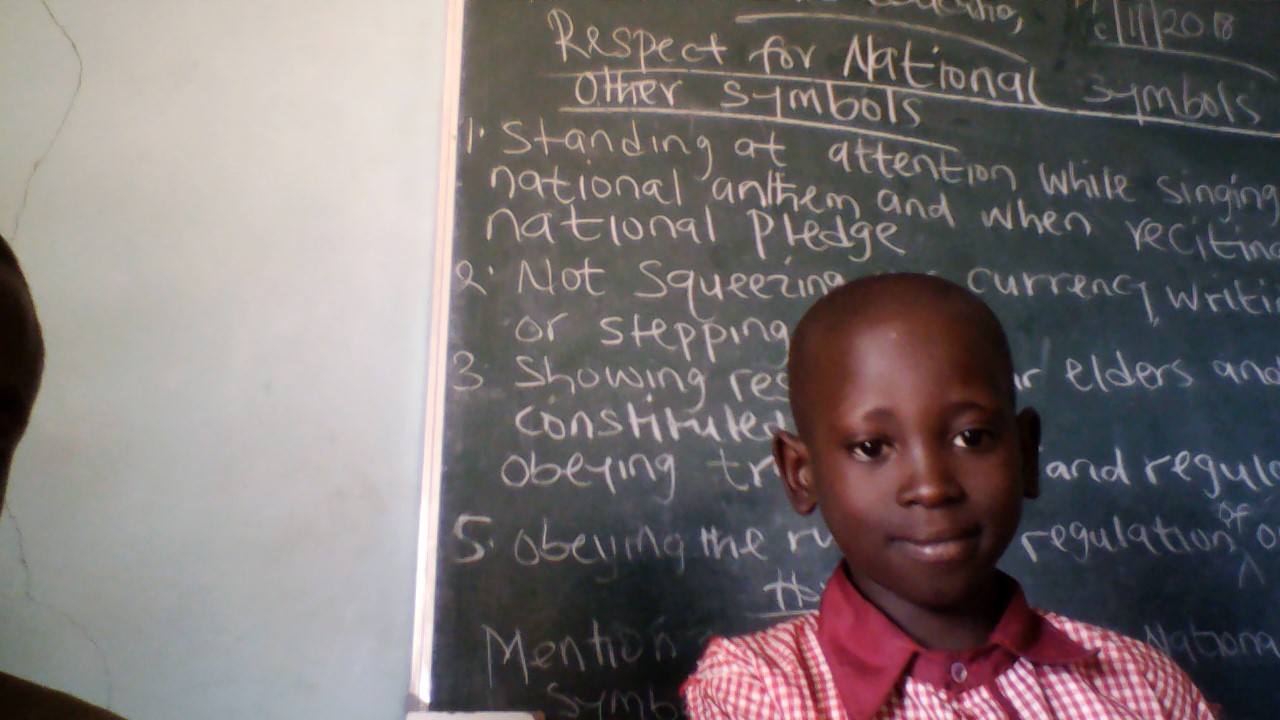 11/2018
Respect for National Symbols
Other symbols
1. Standing at attention while singing
national anthem and when reciting
national Pledge
2. Not Squeezing currency, writi
or stepping
3. Showing res r elders and
constituted
obeying tr and regula
5. obeying the ru regulation of o
Mention Nationa
Symb